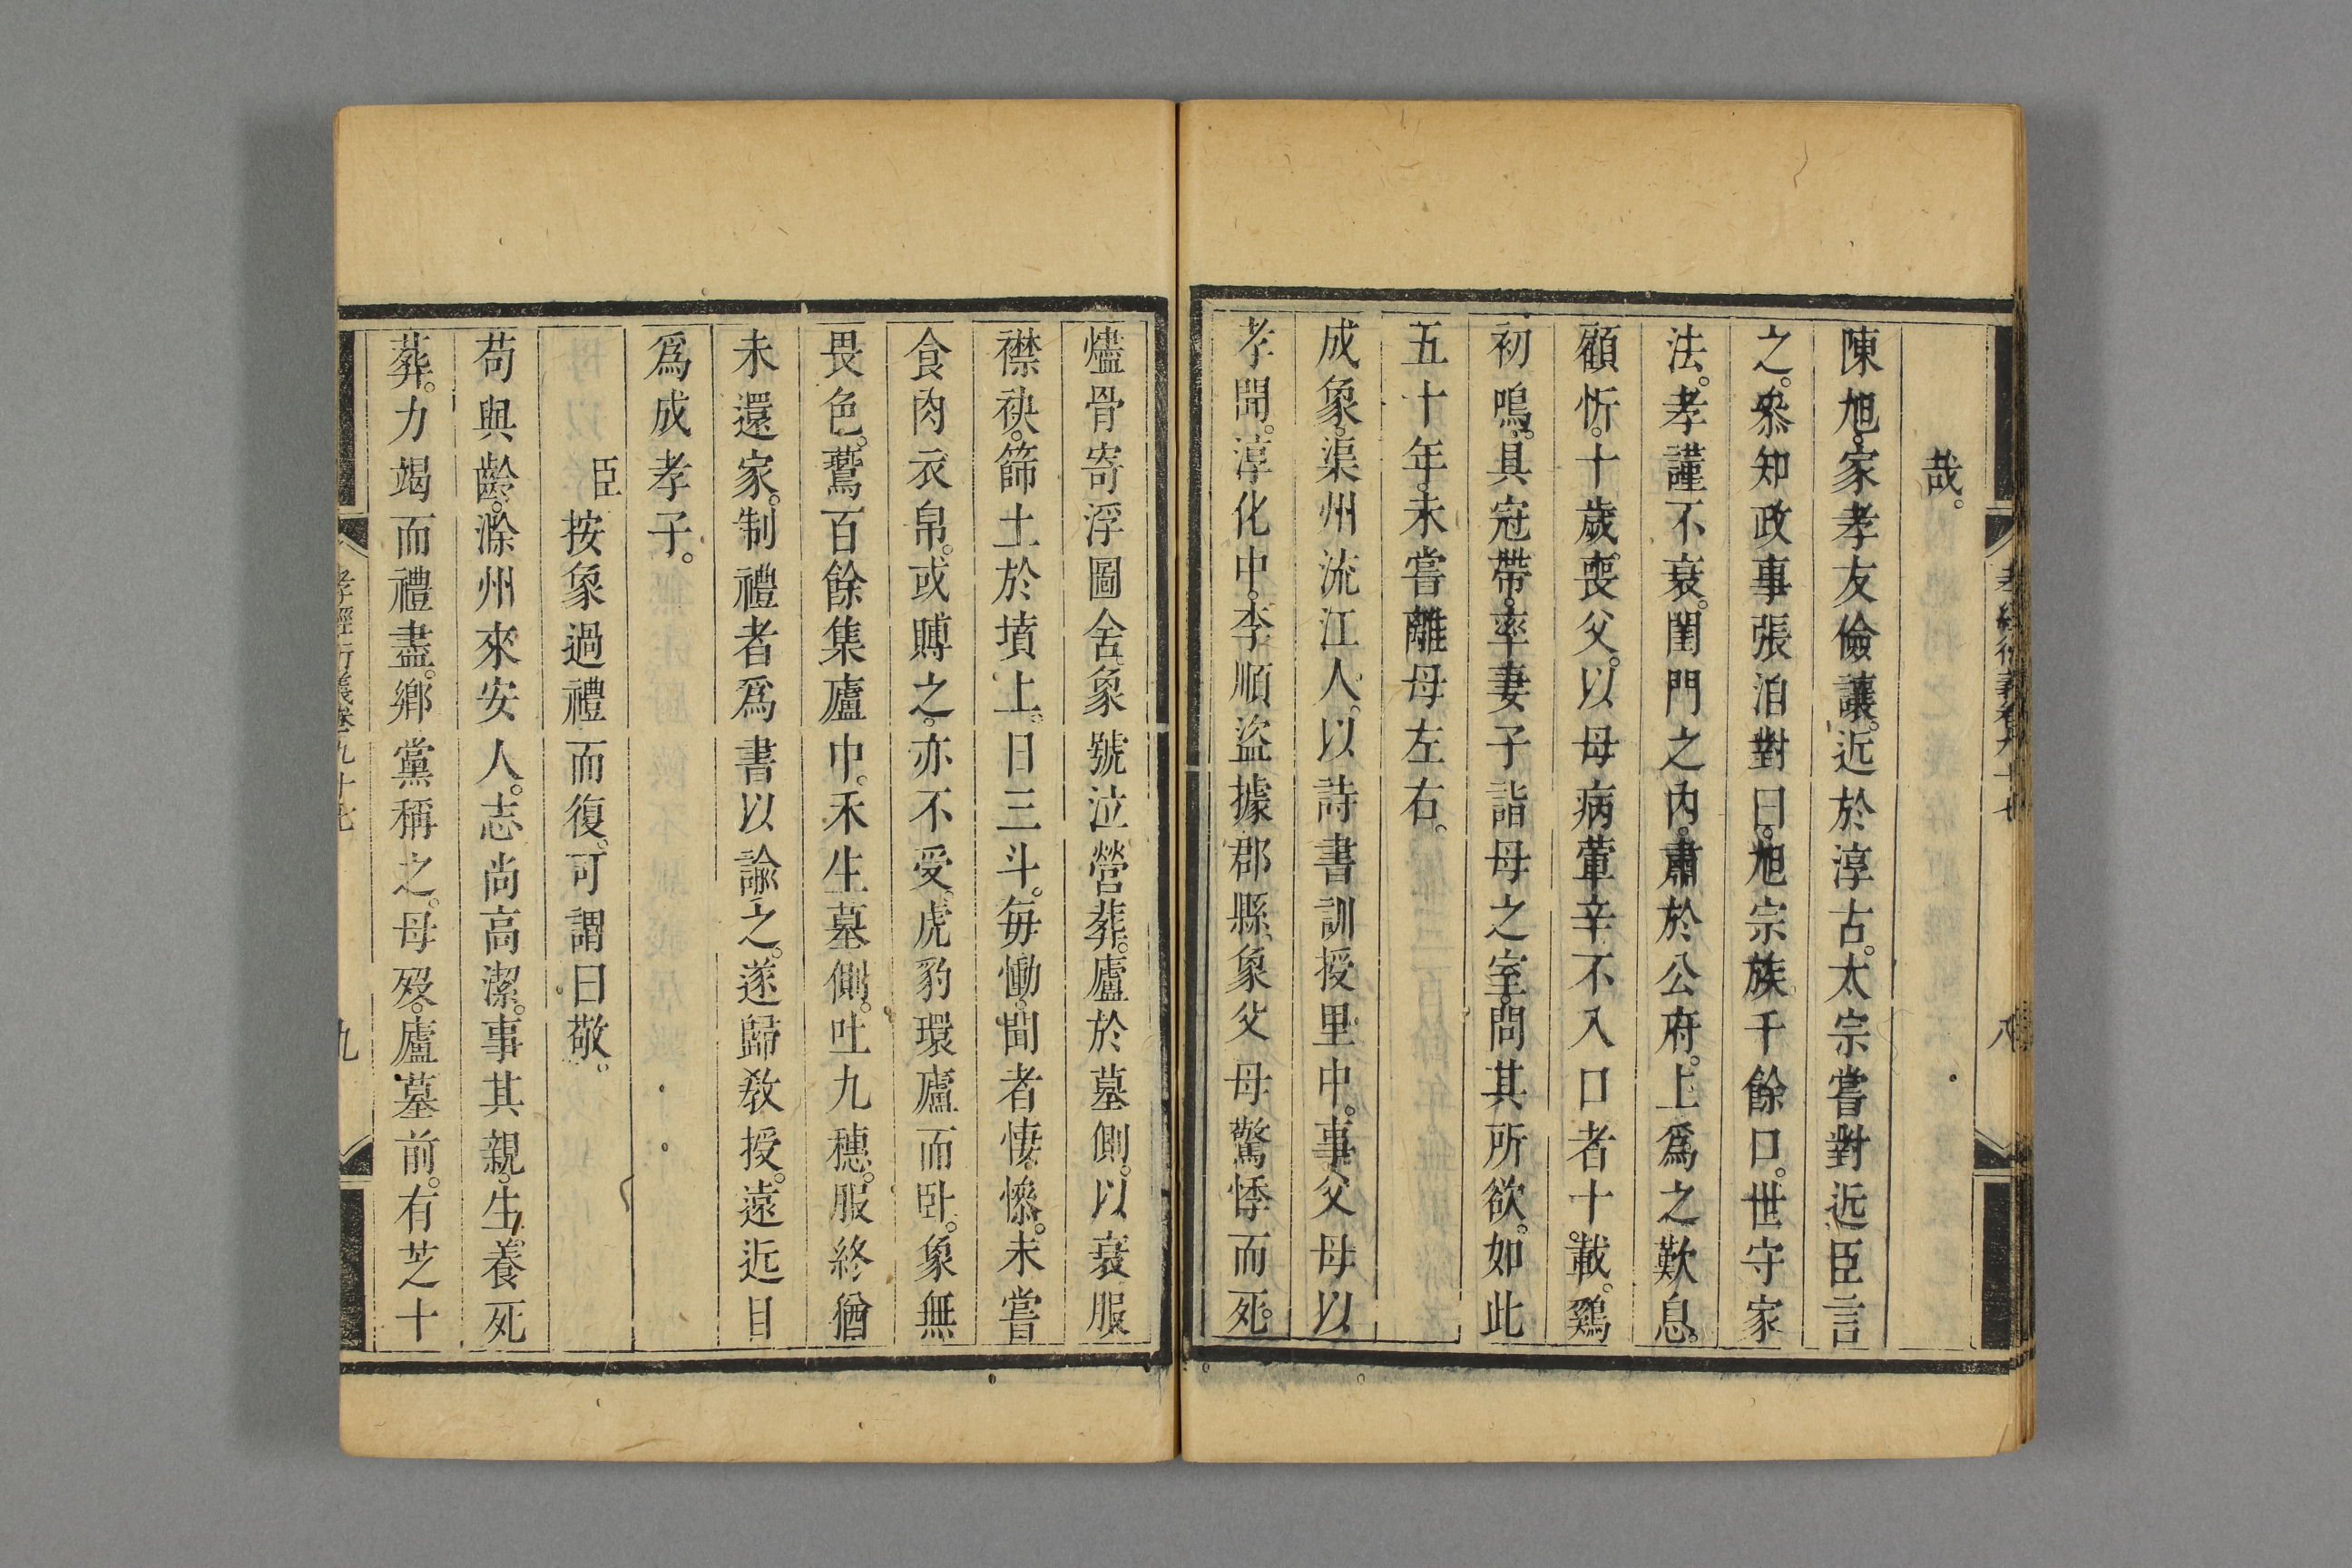 孝經衍義卷九十七 八
哉。
陳旭。家孝友儉讓。近於淳古。太宗嘗對近臣言
之。叅知政事張洎對曰。旭宗族千餘口。世守家
法。孝謹不衰。閨門之內。肅於公府。上爲之歎息。
顧忻。十歲喪父。以母病葷辛不入口者十。載。鷄
初鳴。具冠帶。率妻子詣母之室。問其所欲。如此
五十年。未嘗離母左右。
成象。渠州流江人。以詩書訓授里中。事父母以
孝聞。淳化中。李順盜據郡縣。象父母驚悸而死。
燼骨寄浮圖舍。象號泣營葬。廬於墓側。以衰服
襟袂。篩土於墳上。日三斗。每慟。聞者悽慘。未嘗
食肉衣帛。或賻之。亦不受。虎豹環廬而臥。象無
畏色。鷰百餘集廬中。禾生墓側。吐九穗。服終猶
未還家。制禮者爲書以諭之。遂歸敎授。遠近目
爲成孝子。
臣按象過禮而復。可謂曰敬。
苟與齡。滁州來安人。志尚高潔。事其親。生養死
葬。力竭而禮盡。鄉黨稱之。母歿。廬墓前。有芝十
孝經衍義卷九十七 九